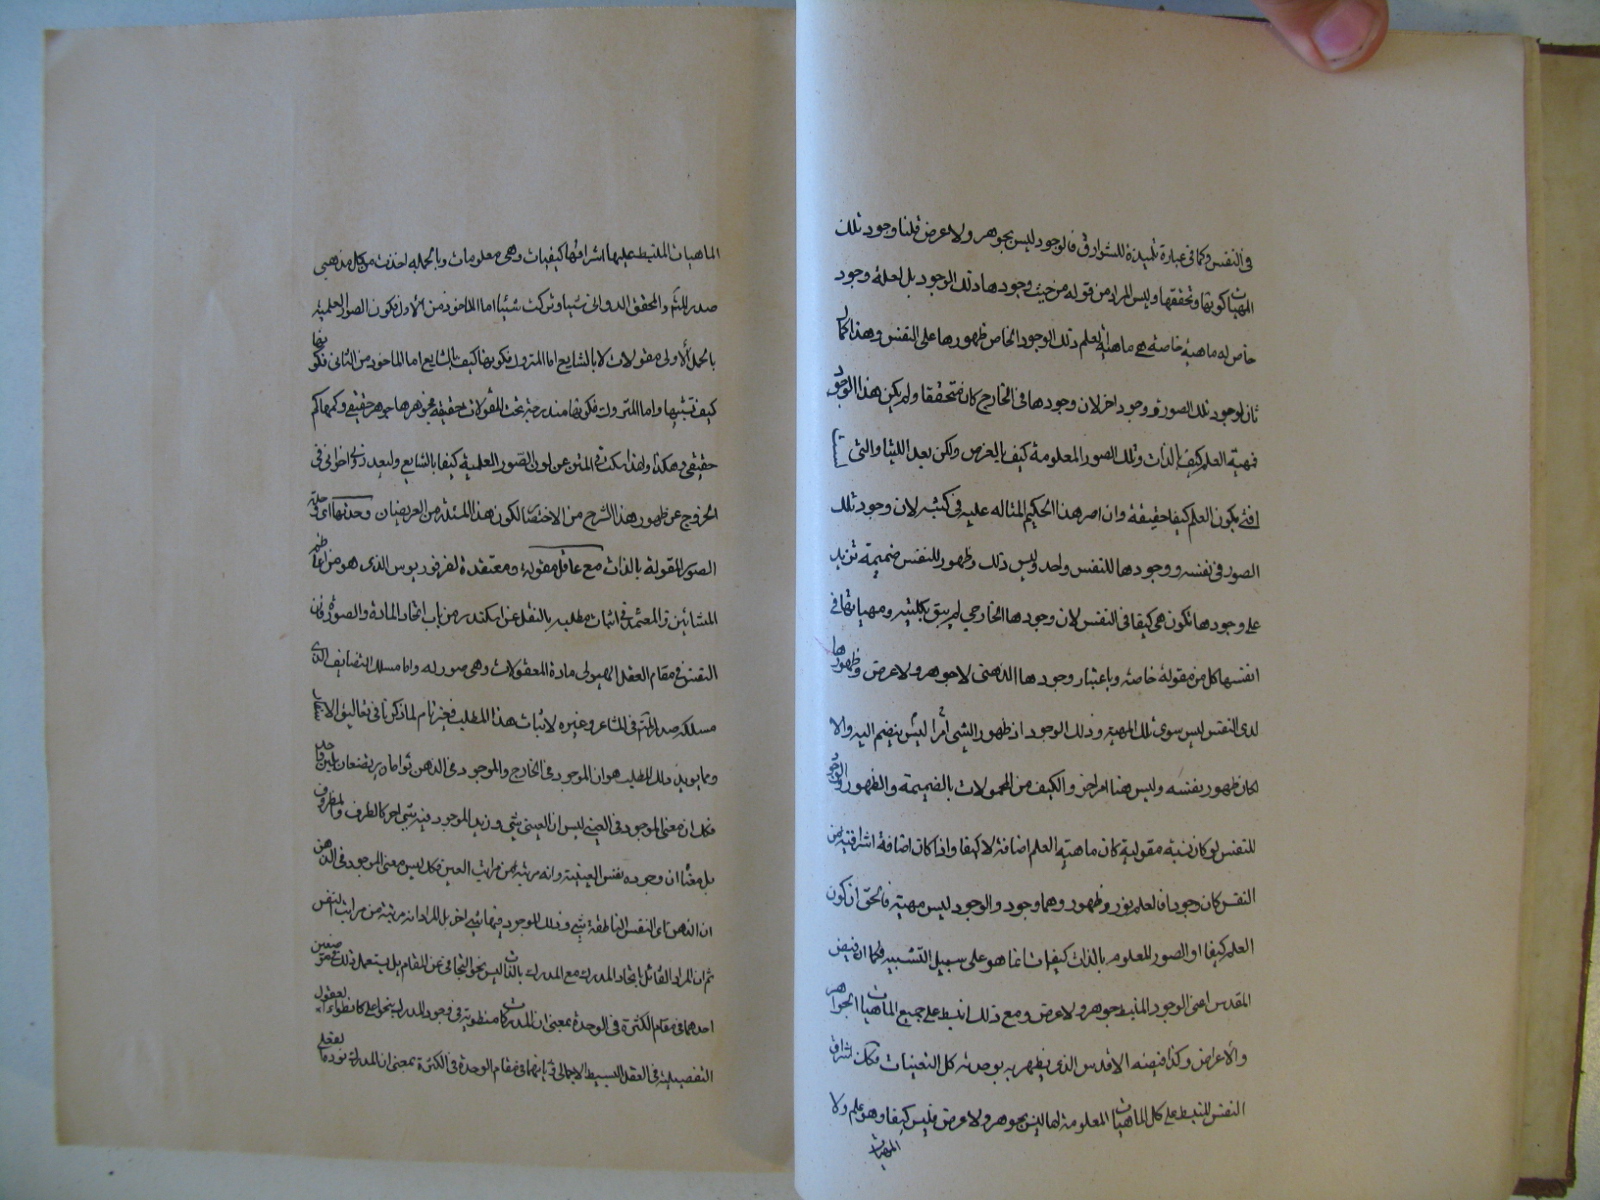 فى النفس وكما فى عبارة تلميذة للشوارق فالوجود ليس بجوهر ولا عرض قلنا وجود تلك
المهيات كونها وتحققها وليس المراد من قوله من حيث وجودها ذلك الوجود بل لعله وجود
خاص له ماهية خاصة هى ماهية العلم ذلك الوجود الخاص ظهورها على النفس وهذا كمال
ثان لوجود تلك الصور ووجود اخر لان وجودها فى الخارج كان متحققا ولم يكن هذا الوجود
فمهية العلم كيف بالذات وتلك الصور المعلومة كيف بالعرض ولكن بعد اللتيا والتى لست
افتى بكون العلم كيفا حقيقة وان اصر هذا الحكيم المتاله عليه فى كتبه لان وجود تلك
الصور فى نفسه ووجودها للنفس واحد وليس ذلك وظهور للنفس ضميمة تزيد
على وجودها تكون هى كيفا فى النفس لان وجودها الخارجى لم يبق بكليته ومهياتها فى
انفسها كل من مقولة خاصة وباعتبار وجودها الذهنى لا جوهر ولا عرض وظهورها
لدى النفس ليس سوى تلك المهية وذلك الوجود اذ ظهور الشئ امرا ليس ينضم اليه والا
لكان ظهور نفسه وليس هنا امر اخر والكيف من المحمولات بالضميمة والظهور والوجود
للنفس لو كان نسبة مقولية كان ماهية العلم اضافة لا كيفا واذا كان اضافة اشراقية من
النفس كان وجودا فالعلم نور وظهور وهما وجود والوجود ليس مهية فالحق ان كون
العلم كيفا او الصور المعلومة بالذات كيفيات انما هو على سبيل التشبيه فكما ان فيض
المقدس اعنى الوجود المنبسط لا جوهر ولا عرض ومع ذلك انبسط على جميع الماهيات الجواهر
والاعراض وكذا فيضه الاقدس الذى يظهر به بوحدته كل التعينات فكذلك اشراق
النفس المنبسط على كل الماهيات المعلومة لها ليس بجوهر ولا عرض فليس كيفا وهو علم ولا
الماهيات المنبسط عليها اشراقها كيفيات وهى معلومات وبالجملة اخذت من كل مذهبى
صدر المتأ والمحقق الدوانى شيئا وتركت شيئا اما الماخوذ من الاول فكون الصور العلمية
بالحمل الاولى مقولات لا بالشايع اما المتروك فكونها كيف بالشايع اما الماخوذ من الثانى فكونها
كيف تشبيها واما المتروك فكونها مندرجة تحت المقولات حقيقة فجوهرها جوهر حقيقى وكمها كم
حقيقى وهكذا ولهذا سكت فى المتن عن كون الصور العلمية كيفا بالشايع وليعذرنى اخوانى فى
الخروج عن طور هذا الشرح من الاختصار لكون هذه المسئلة من العويصات وحدتها اى وحدة
الصور المقولة بالذات مع عاقل مقولة ومعتقدة لفرفوريوس الذى هو من اعاظم
المشائين والمعتمد فى اثبات مطلبه بالنقل عن اسكندر من باب اتحاد المادة والصورة فان
النفس فى مقام العقل الهيولى مادة المعقولات وهى صور له واما مسلك التضايف الذى
مسلكه صدر المتأ فى المشاعر وغيره لاثبات هذا المطلب فغير تام لما ذكرنا فى تعاليق الاسفار
ومما يؤيد ذلك المطلب هو ان الموجود فى الخارج والموجود فى الذهن توأمان يرتضعان بلبن واحد
فكما ان معنى الموجود فى العين ليس ان العين شئ وزيد الموجود فيه شئ اخر كالظرف والمظروف
بل معناه ان وجوده نفس العينية وانه مرتبة من مراتب العين فكذلك ليس معنى الموجود فى الذهن
ان الذهن اى النفس الناطقة شئ وذلك الموجود فيها شئ اخر بل المراد انه مرتبة من مراتب النفس
ثم ان المراد القائل باتحاد المدرك مع المدرك بالذات ليس نحو التجافى عن المقام بل يستعمل ذلك فى موضعين
احدهما فى مقام الكثرة فى الوحدة بمعنى ان المدركات منطوية فى وجود المدرك بنحو اعلى كانطواء العقول
التفصيلية فى العقل البسيط الاجمالى وثانيهما فى مقام الوحدة فى الكثرة بمعنى ان المدرك نوره الفعلى